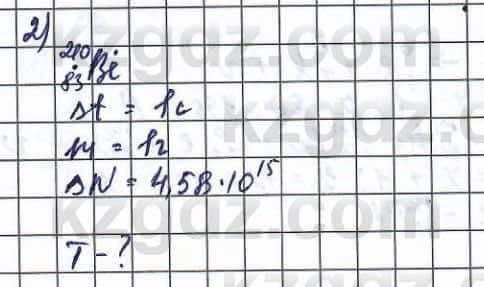 2)
²¹⁰₈₃Bi
Δt = 1c
m = 1г
ΔN = 4,58·10¹⁵
T - ?
kzgdz.com
kzgdz.com
kzgdz.com